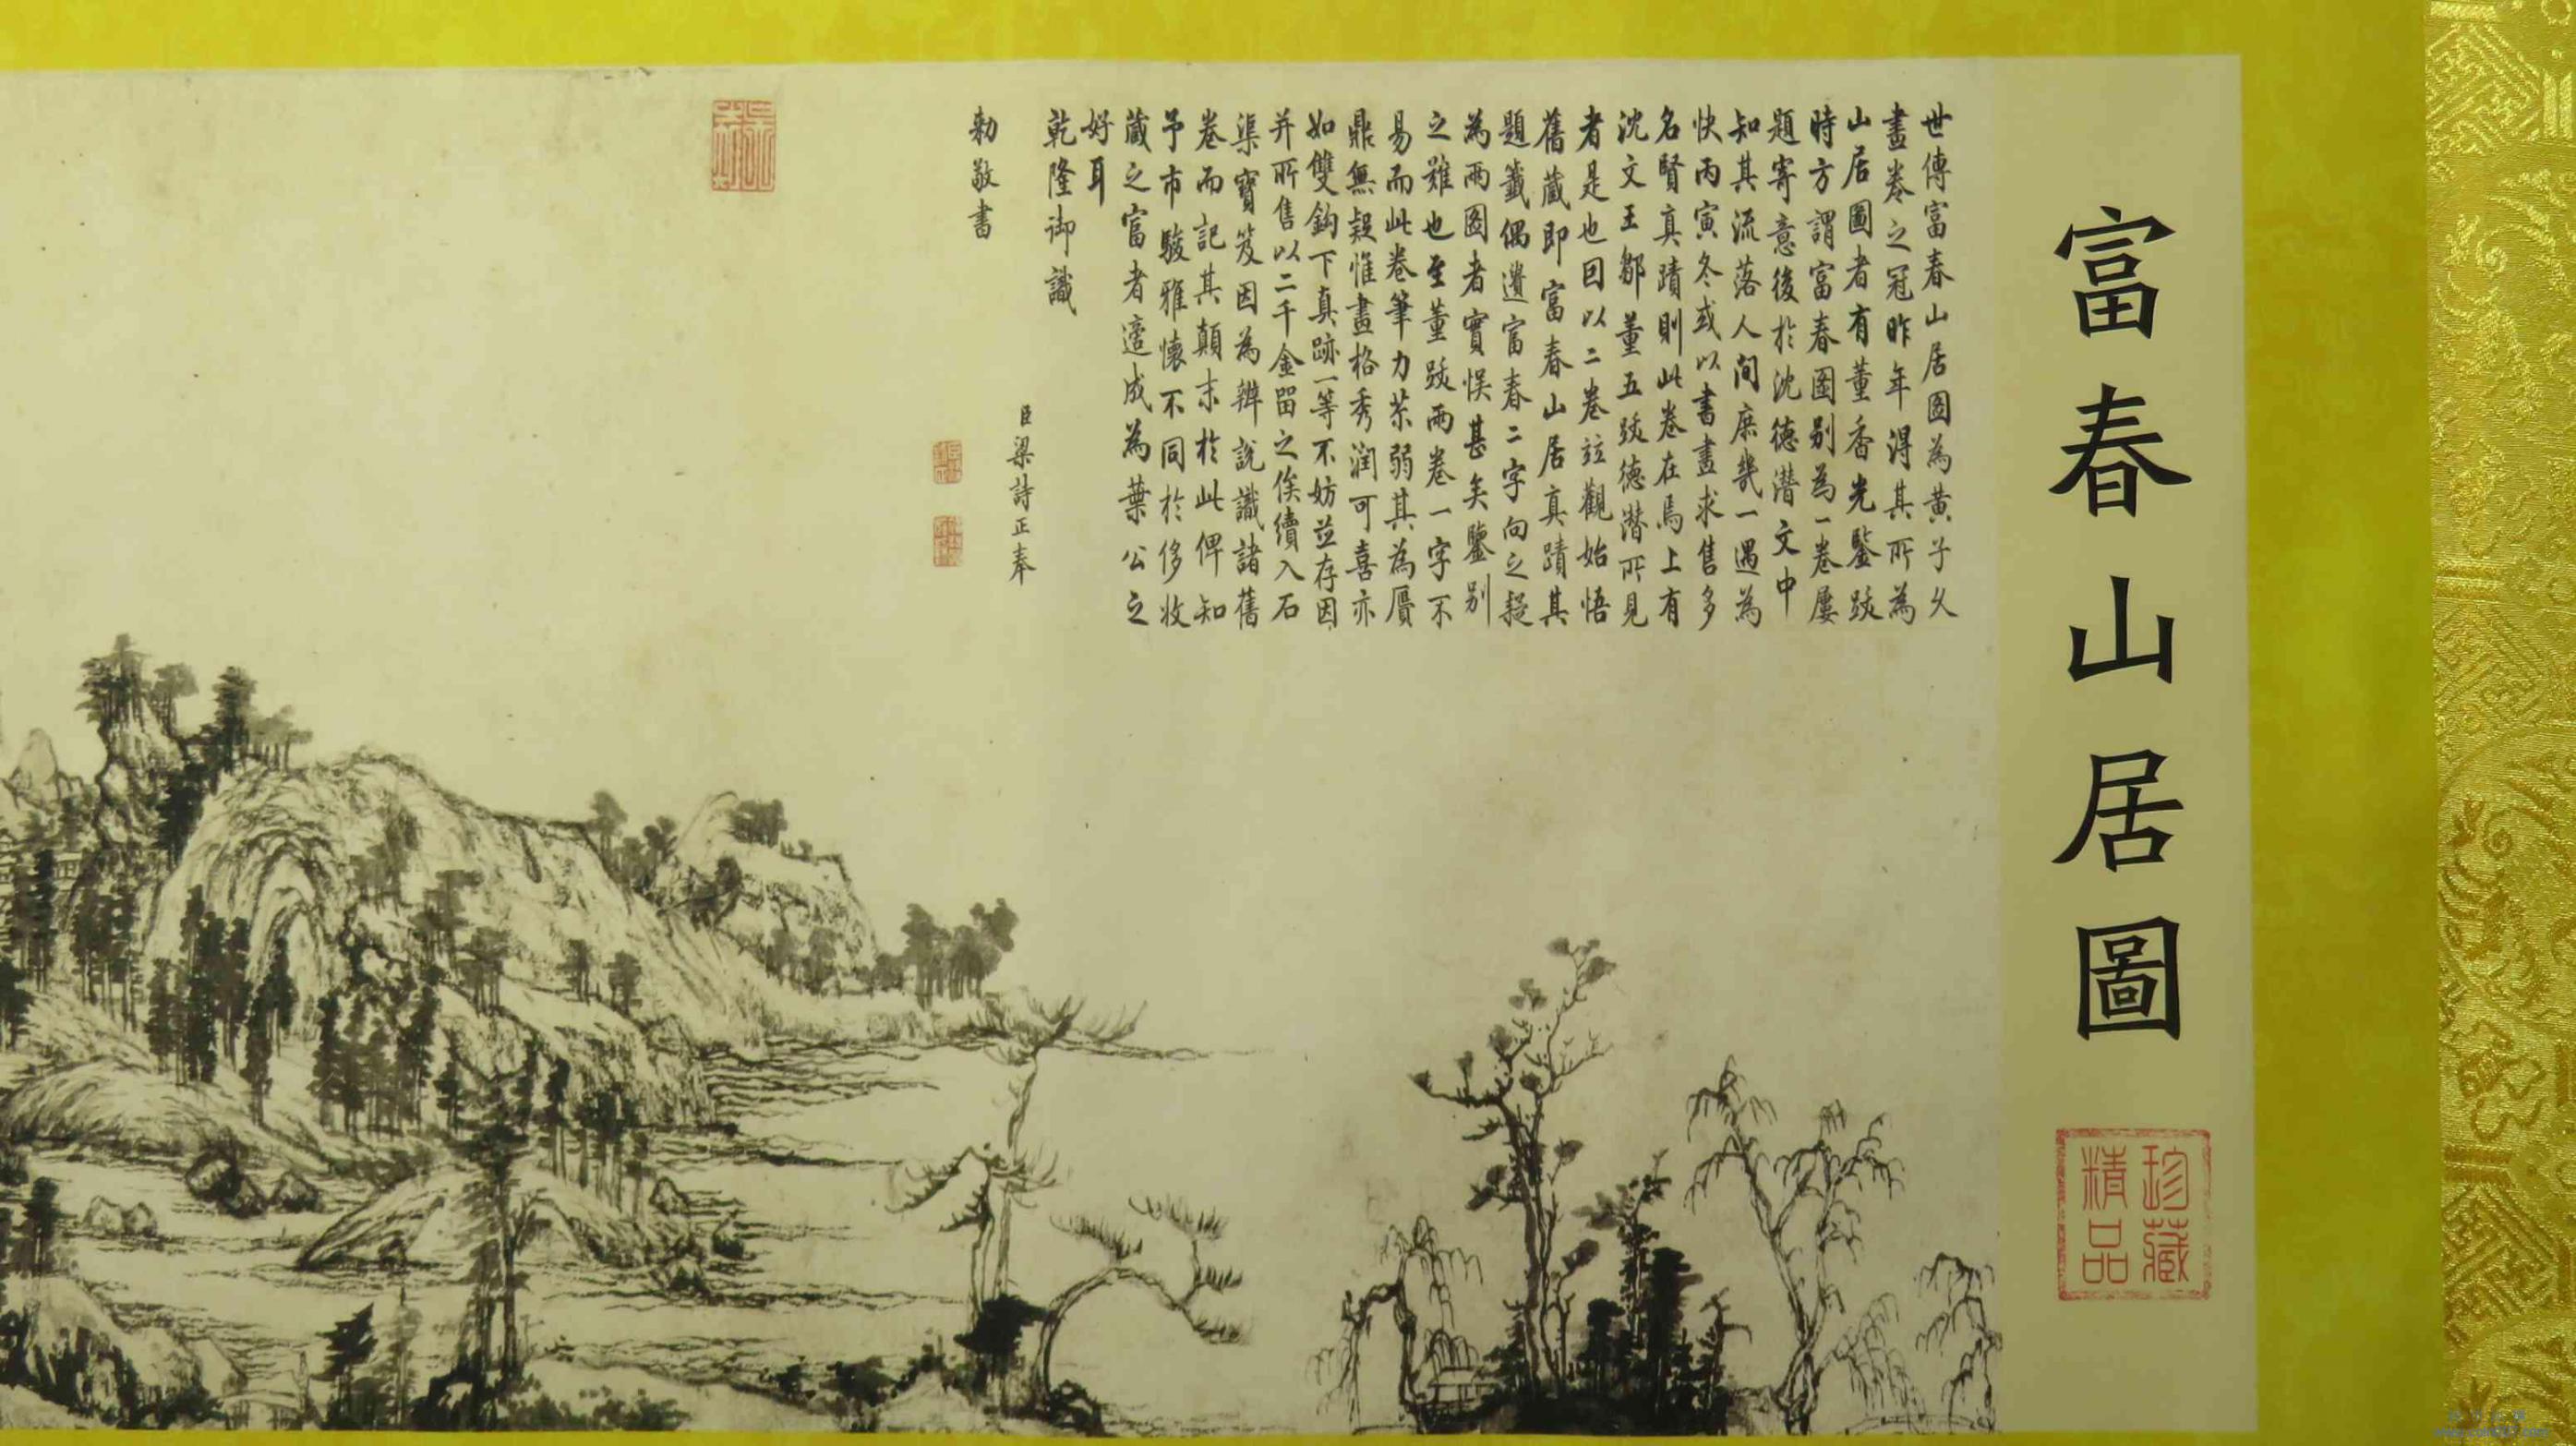 富春山居圖
珍藏
精品
世傳富春山居圖為黃子久
畫卷之冠昨年得其所為
山居圖者有董香光鑒跋
時方謂富春圖別為一卷屢
題寄意後於沈德潛文中
知其流落人间庶幾一遇為
快丙寅冬或以書畫求售多
名賢真蹟則此卷在焉上有
沈文王鄒董五跋德潛所見
者是也因以二卷竝觀始悟
舊藏即富春山居真蹟其
題籤偶遺富春二字向之疑
為兩圖者實悮甚矣鑒別
之難也至董跋兩卷一字不
易而此卷筆力苶弱其為贋
鼎無疑惟畫格秀潤可喜亦
如雙鈎下真跡一等不妨並存因
并所售以二千金留之俟續入石
渠寶笈因為辨說識諸舊
卷而記其顛末於此俾知
予市駿雅懷不同於侈收
藏之富者適成為葉公之
好耳
乾隆御識
臣梁詩正奉
勑敬書